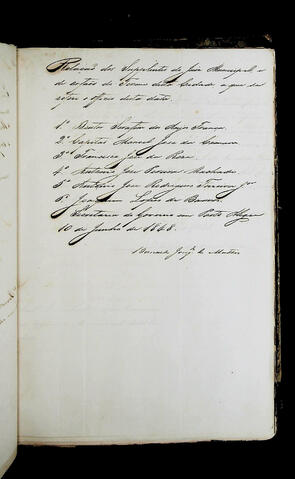 Relação dos Supplentes do Juiz Municipal e
de orfãos do Termo desta Cidade a que se
refere o officio desta data.
1º Doutor Serafim dos Anjos França
2º Capitão Manoel José da Camara
3º Francisco José da Rosa
4º Antonio José Machado
5º Antonio José Rodrigues Ferreira Jor
6º Joaquim Lopes de Barros
Secretaria do Governo em Porto Alegre
10 de Junho de 1848.
Bernardo Joaqm de Mattos